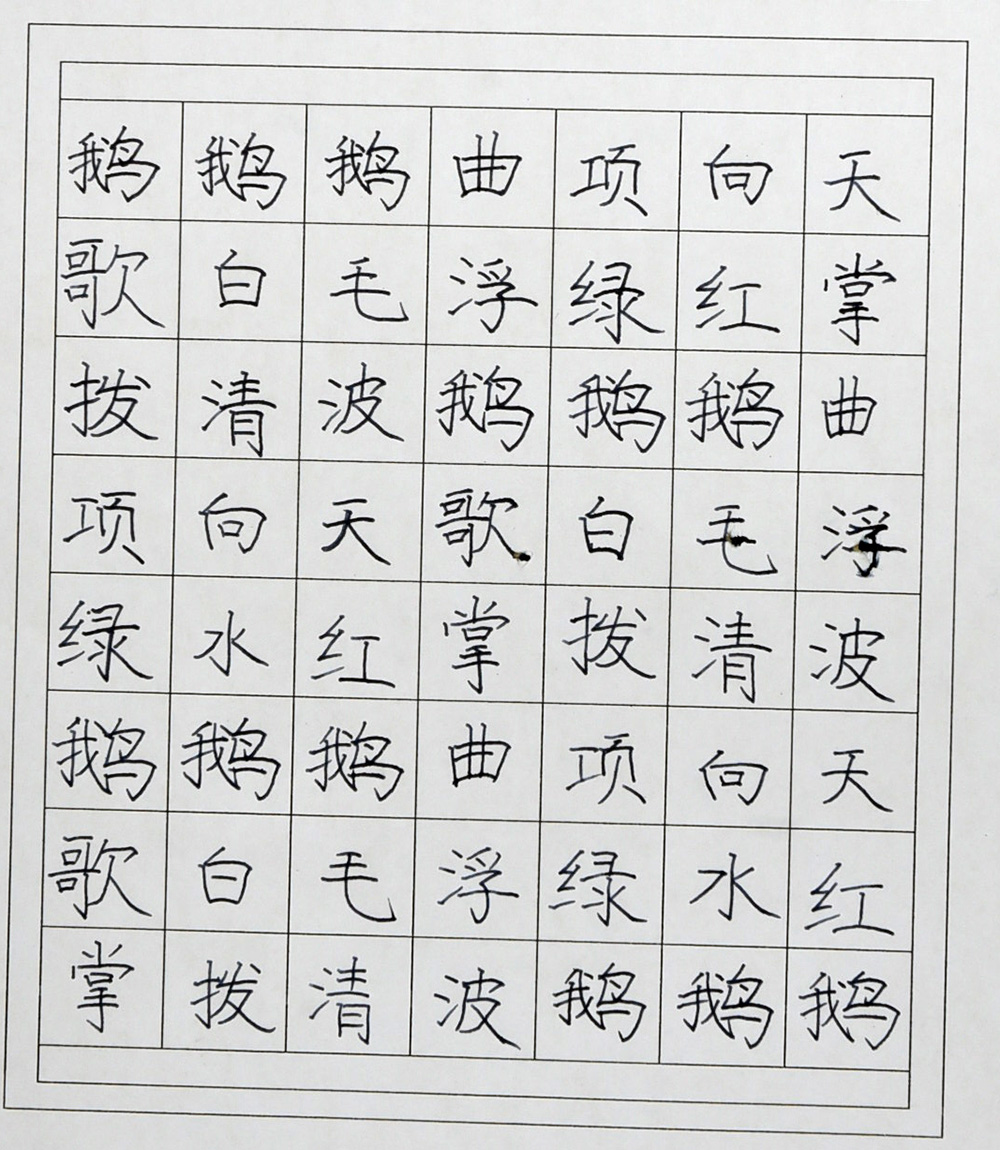 鹅鹅鹅曲项向天
歌白毛浮绿红掌
拨清波鹅鹅鹅曲
项向天歌白毛浮
绿水红掌拨清波
鹅鹅鹅曲项向天
歌白毛浮绿水红
掌拨清波鹅鹅鹅